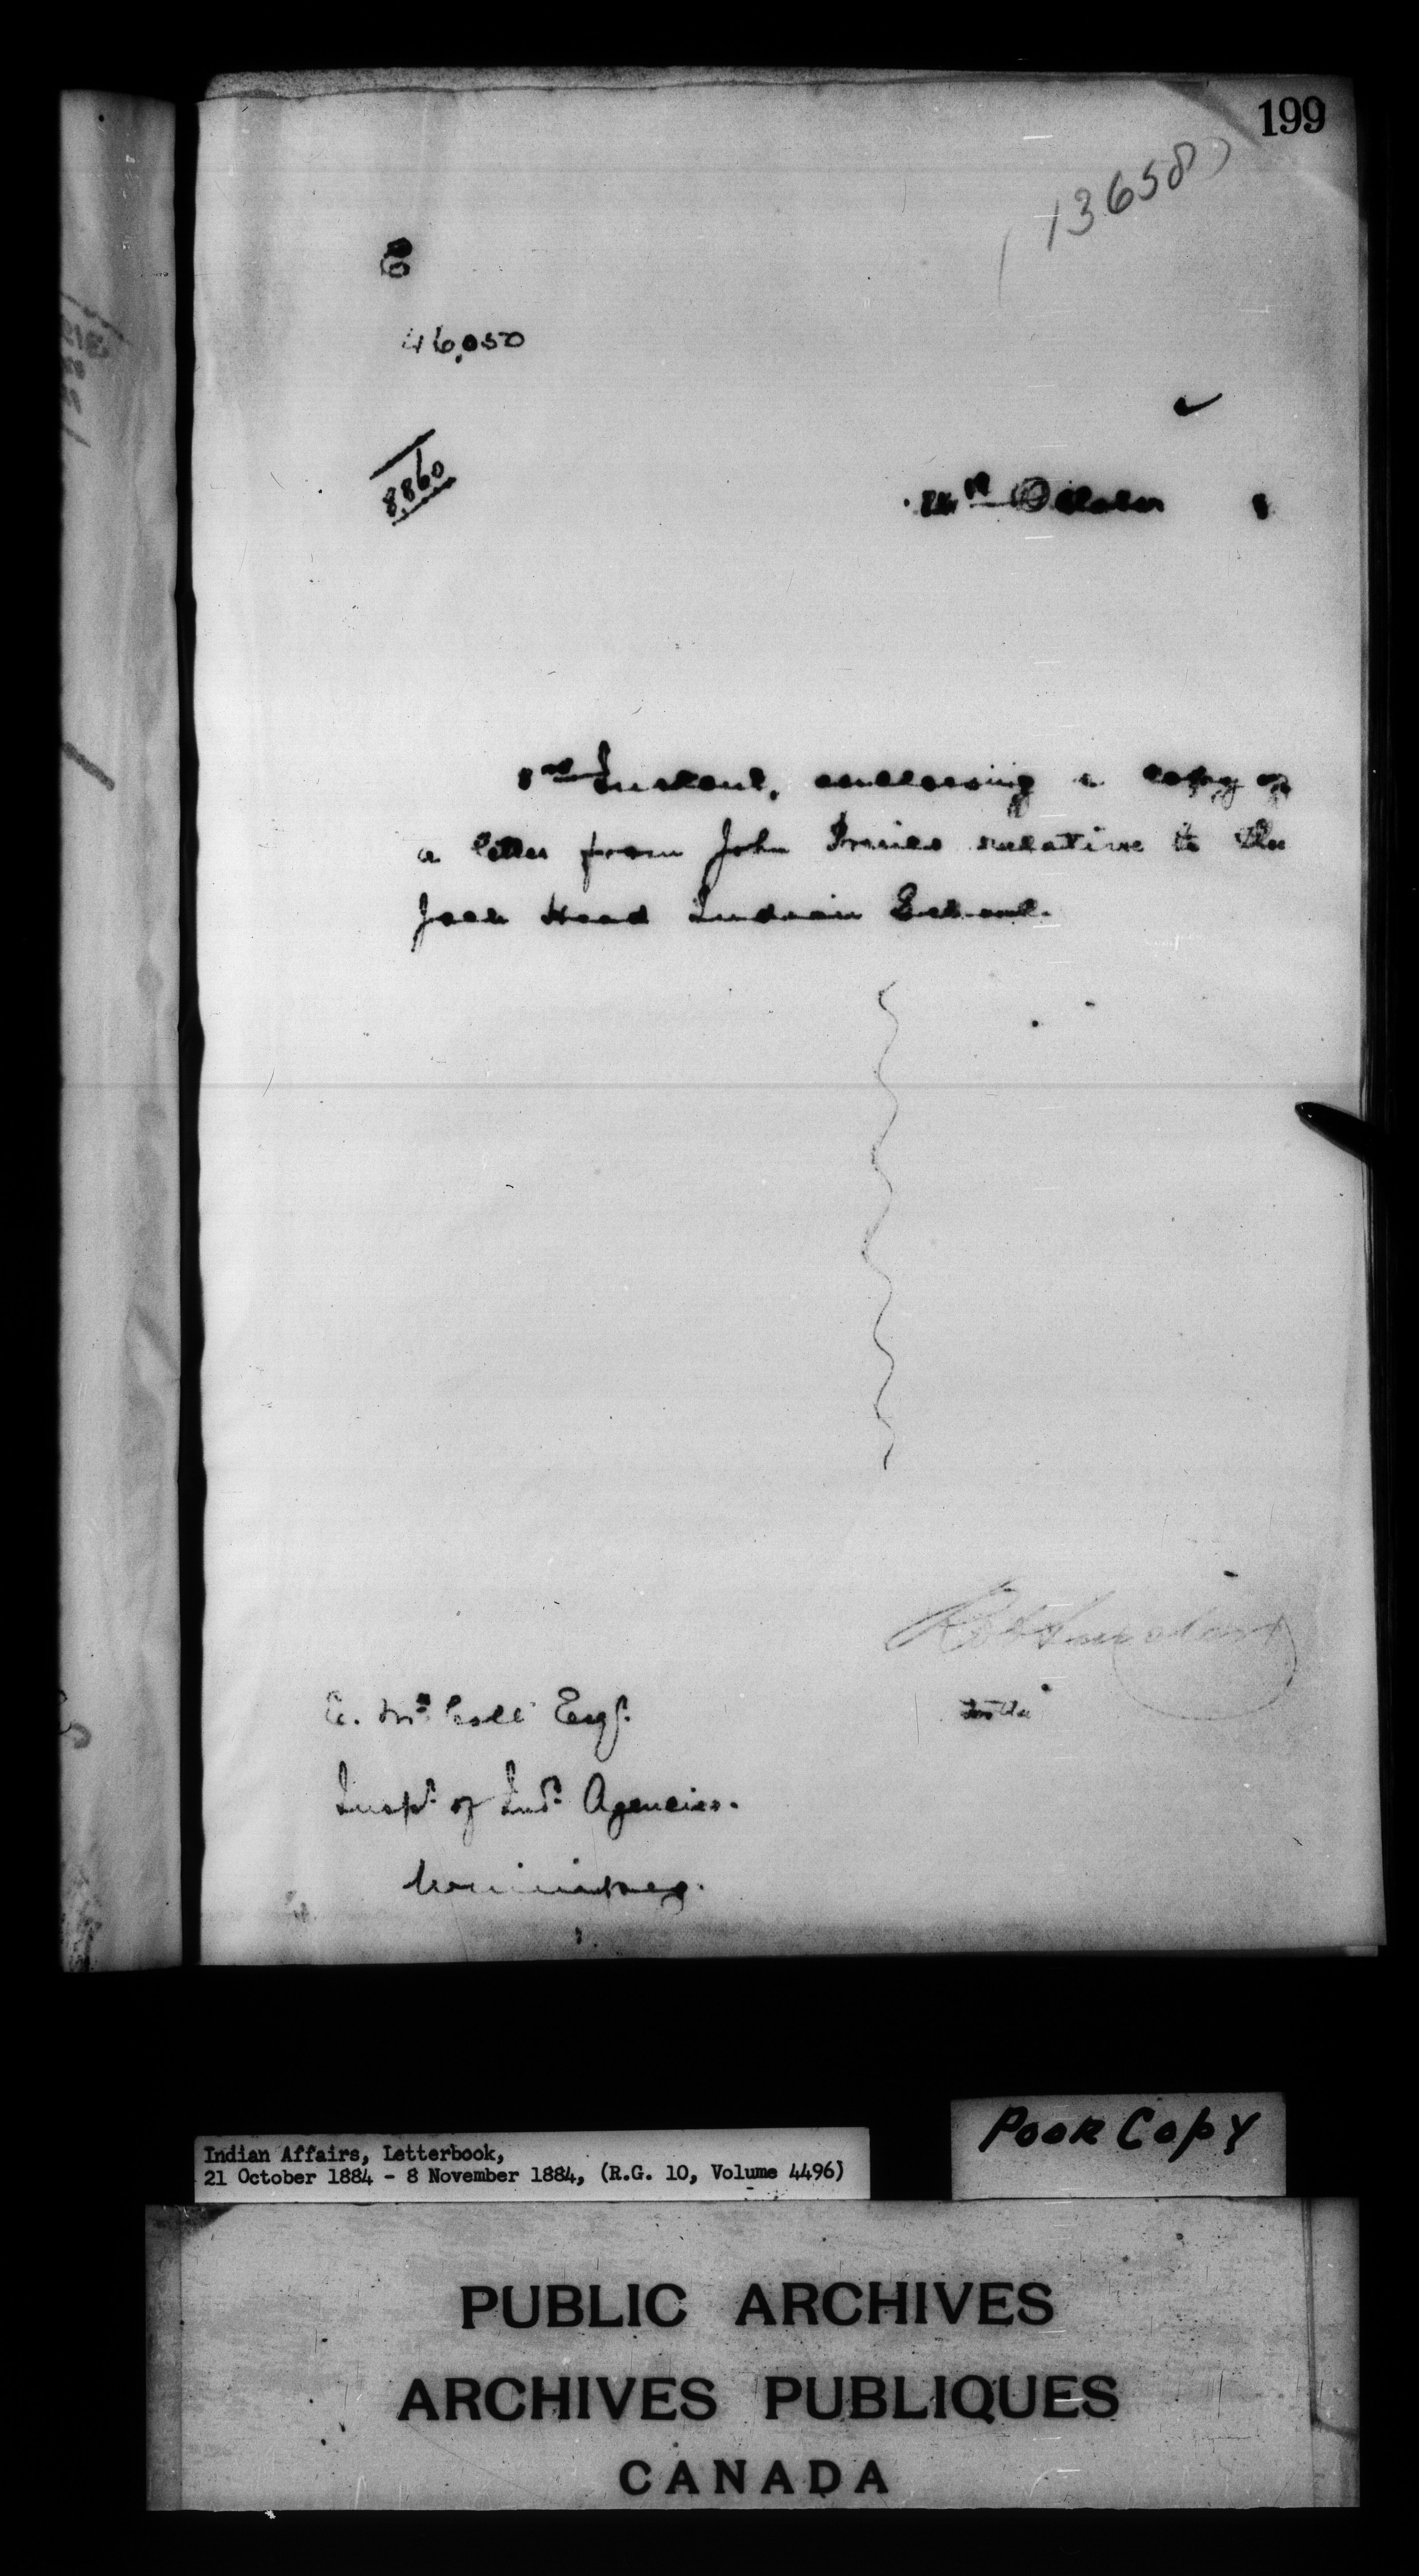 199
13658
46,050
8860
24th October
Instant, enclosing a copy of
a letter from John Innes relative to the
Jack Head Indian School.
E. McColl Esqr.
Inspr. of Indn. Agencies.
Winnipeg.
Poor Copy
Indian Affairs, Letterbook,
21 October 1884 - 8 November 1884, (R.G. 10, Volume 4496)
PUBLIC ARCHIVES
ARCHIVES PUBLIQUES
CANADA